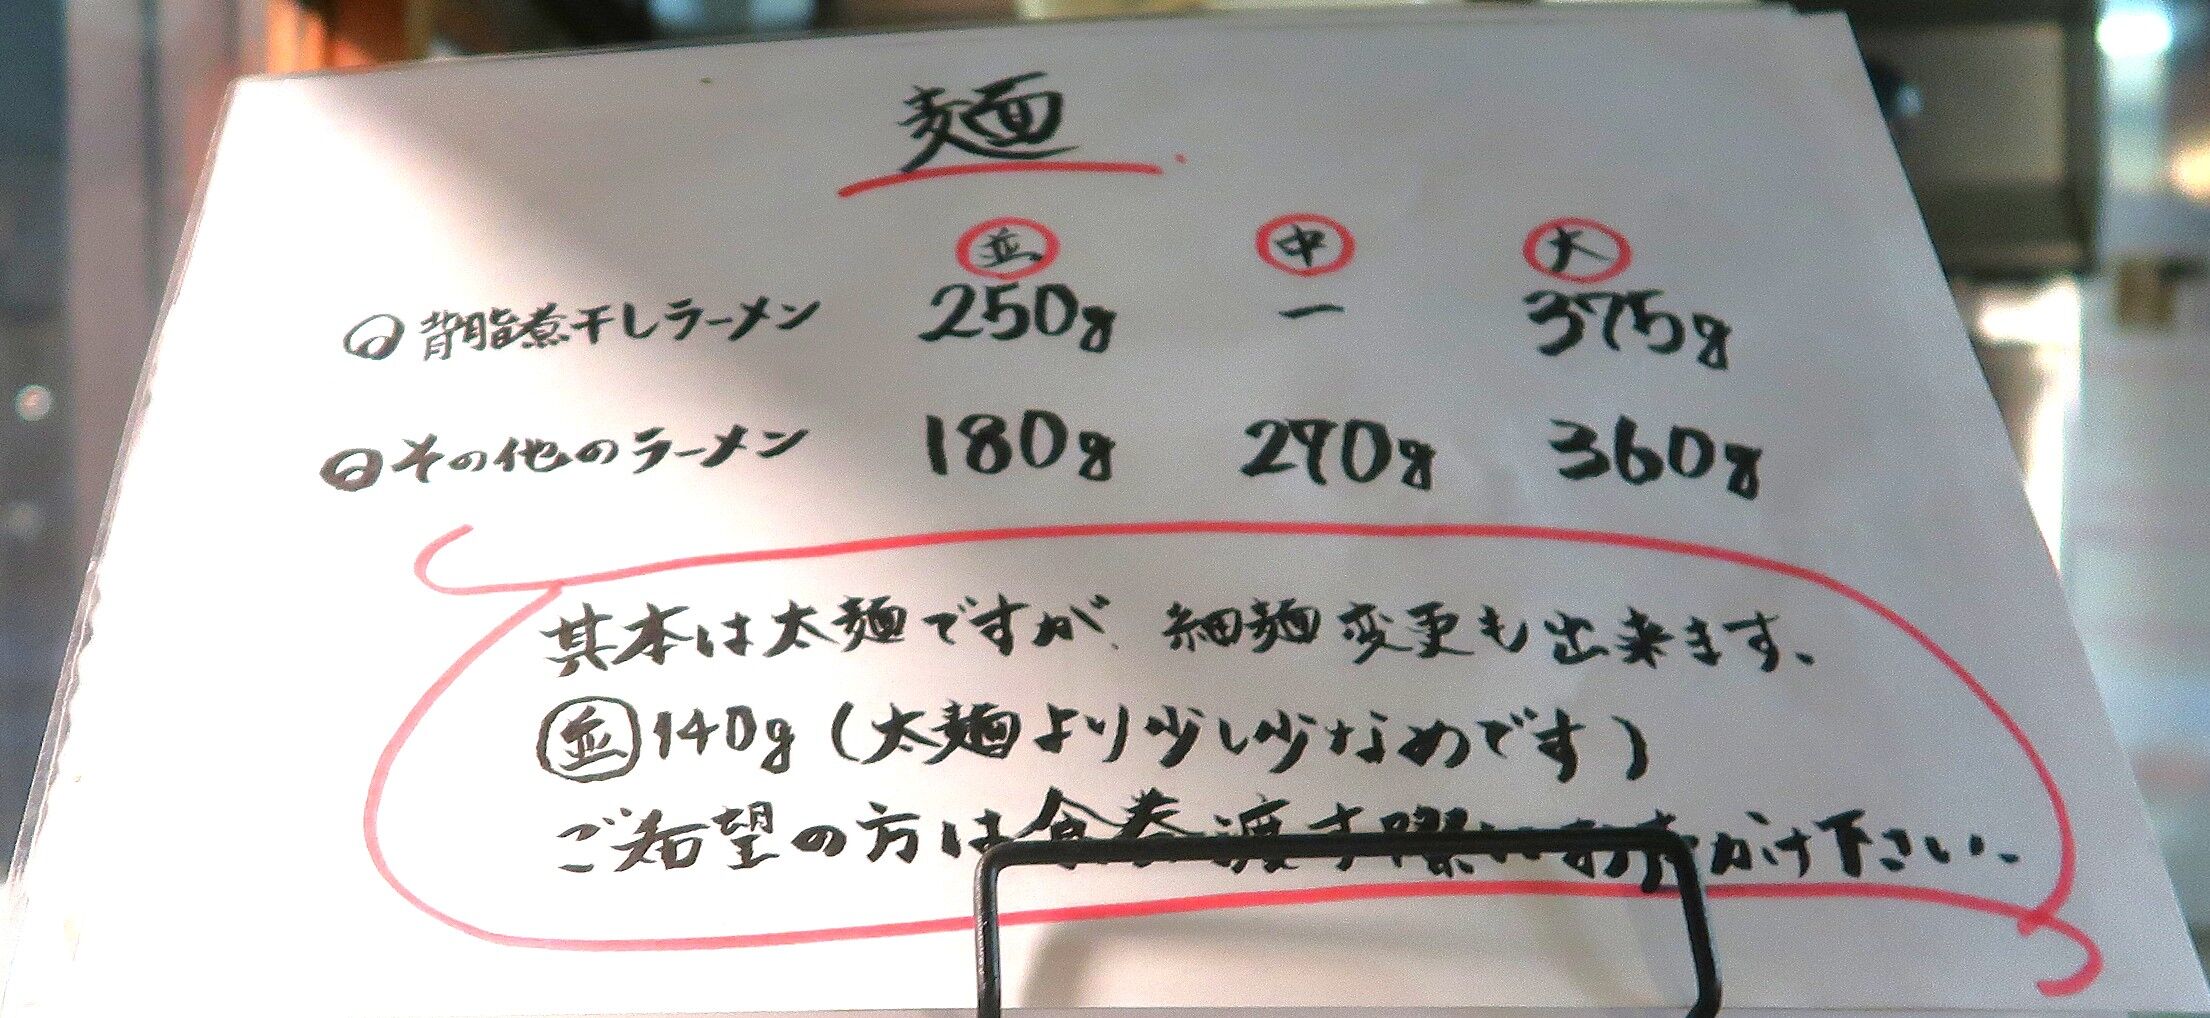 麺
並 中 大
背脂煮干しラーメン 250g ー 375g
その他のラーメン 180g 270g 360g
基本は太麺ですが、細麺変更も出来ます、
並140g(太麺より少し少なめです)
ご希望の方は食券渡す際にお声がけ下さい、